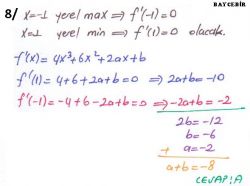 BAYCEBİR
8/ x=-1 yerel max ⇒ f'(-1)=0
x=1 yerel min ⇒ f'(1)=0 olacak.
f'(x)= 4x³+6x²+2ax+b
f'(1)= 4+6+2a+b=0 ⇒ 2a+b=-10
f'(-1)=-4+6-2a+b=0 ⇒ -2a+b=-2
2b=-12
b=-6
a=-2
+
a+b=-8
CEVAP:A